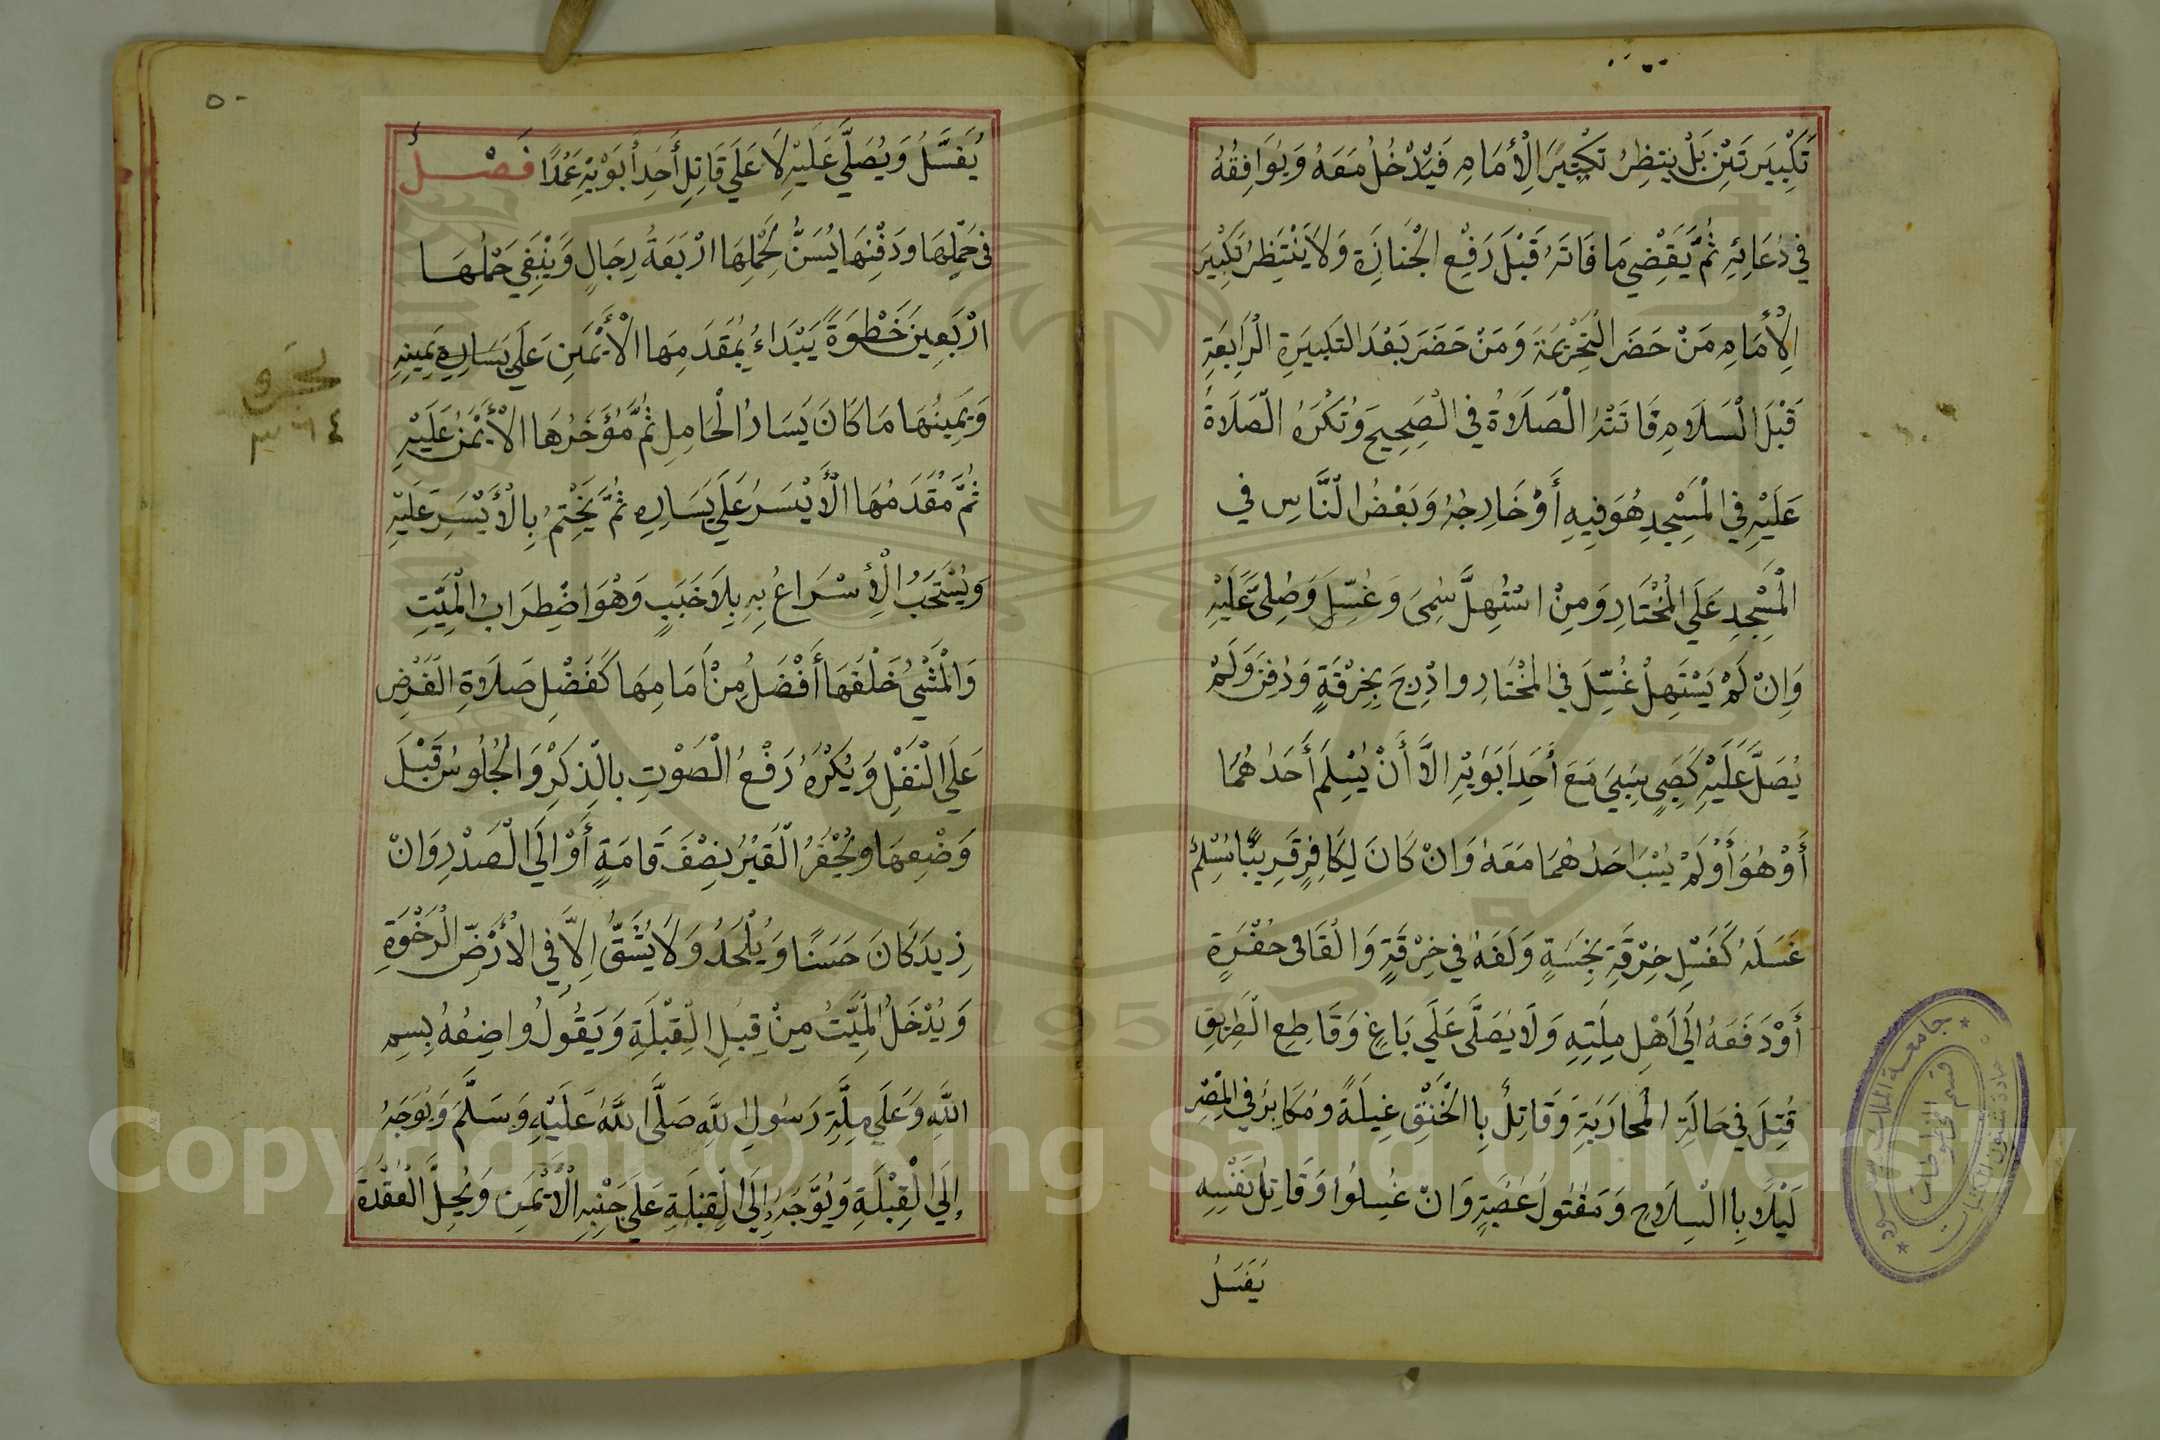 تَكْبِيرَتَيْنِ بَلْ يَنتظِرُ تَكْبِيرَ الْأِمَامِ فَيَدْخُلُ مَعَهُ وَيُوَافِقُهُ
فِي دُعَائِهِ ثُمَّ يَقْضِي مَا فَاتَهُ قَبْلَ رَفْعِ الْجَنَازَةِ وَلَا يَنْتَظِرُ تَكْبِيرَ
الْأِمَامِ مَنْ حَضَرَ التَّحْرِيمَةَ وَمَنْ حَضَرَ بَعْدَ التَكبِيرَةِ الْرَابِعَةِ
قَبْلَ الْسَلَامِ فَاتَتْهُ الْصَلَاةُ فِي الْصَحِيحِ وَتُكْرَهُ الْصَّلَاةُ
عَلَيْهِ فِي الْمَسْجِدِ هُوَ فِيهِ أَوْ خَارِجُهُ وَبَعْضُ الْنَّاسِ فِي
الْمَسْجِدِ عَلَي الْمُخْتَارِ وَمِنْ اسْتُهِلَّ سُمِيَ وَغُسِّلَ وَصُلِيَّ عَلَيْهِ
وَاِنْ لَمْ يَسْتَهِلْ غُسِّلَ فِي الْمُخْتَارِ وادْرِجَ بِخِرْقَةٍ وَدُفِنَ وَلَمْ
يُصَلَّ عَلَيْهِ كَصَبِيٍ سُبِيَ مَعَ أَحَدِ أَبَوَيْهِ اِلَّا أَنْ يُسْلِمَ أَحَدُهُمَا
أَوْ هُوَ أَوْ لَمْ يُسْبَ احَدُهُمَا مَعَهُ وَاِنْ كَانَ لِكَافِرٍ قَرِيبٌ مُسْلِمٌ
غَسَلَهُ كَغَسْلِ خِرْقَةٍ نَجِسَةٍ وَلَفَهُ فِي خِرْقَةٍ وَالْقَاه في حُفْرَةٍ
أَوْ دَفَعَهُ اِلَي اَهْلِ مِلَتِهِ وَلَا يُصَلَّى عَلَي بَاغٍ وَقَاطِعِ الْطَرِيقِ
قُتِلَ فِي حَالَةِ الْمُحَارَبَةِ وَقَاتِلٌ بِاالْخَنْقِ غِيلَةً وَمُكَابِرٌ فِي الْمِصْرِ
لَيْلًا بِاالْسِلَاحِ وَمَقْتُولُ عَصَبَةٍ وَاِنْ غُسِلُوا وَقَاتِلُ نَفْسِهِ
يُغَسَلُ
٥٠
يُغَسَّلُ وَيُصَلَّي عَلَيْهِ لَا عَلَي قَاتِلِ أَحَدِ أَبَوَيْهِ عَمْدًا فَصْلٌ
فى حَمْلِهَا ودَفْنِهَا يُسَنُّ لِحَمْلِهَا ارْبَعَةُ رِجَالٍ وَيَنْبَغِي حَمْلُهَا
ارْبَعِينَ خَطْوَةً يَبْدَاءُ بِمُقَدَمِهَا الْأَيْمَنِ عَلَي يَسَارِهِ يَمِينِهِ
وَيَمِينُهَا مَا كَانَ يَسَارُ الْحَامِلِ ثُمَّ مُؤَخَرُهَا الْأَيْمَنُ عَلَيْهِ
ثُمَّ مُقَدَمُهَا الْأَيْسَرُ عَلَي يَسَارِهِ ثُمَّ يَخْتِمُ بِالْأَيْسَرِ عَلَيْهِ
وَيُسْتَحَبُ الْأِسْرَاعُ بِهِ بِلَا خَبَبٍ وَهْوَ اضْطِرَابُ الْمَيِّتِ
وَالْمَشْيُ خَلْفَهَا أَفْضَلُ مِنْ اَمَامِهَا كَفَضْلِ صَلَاةِ الْفَرْضِ
عَلَي الْنَفْلِ وَيُكْرَهُ رَفْعُ الْصَوْتِ بالْذِكْرِ وَالْجُلُوسُ قَبْلَ
وَضْعِهَا وَيُحْفَرُ الْقَبْرُ نِصْفَ قَامَةٍ أَوْ اِلَي الْصَدْرِ وَاِنْ
زِيدَ كَانَ حَسَنًا وَيُلْحَدُ وَلَا يُشَقُّ اِلَّا فِي الْأَرْضِ الْرَخْوَةِ
وَيُدْخَلُ الْمَيِّتُ مِنْ قِبَلِ الْقِبْلَةِ وَيَقُولُ وَاضِعُهُ بِسِم
اللَّهِ وَعَلَي مِلَّةِ رَسُولِ اللَّهِ صَلَّى اللَّهُ عَلَيْهِ وَسَلَّمَ وَيُوَجَهُ
إِلَي الْقِبْلَةِ وَيُوَّجَهُ إِلَي الْقِبْلَةِ عَلَي جَنْبِهِ الْأَيْمَنِ وَيُحِلَّ الْعُقْدَةَ
Copyright © King Saud University
1957